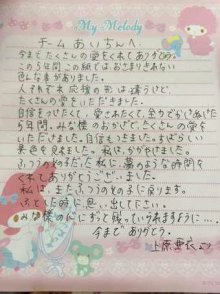 My Melody
チームあいちんへ
今までたくさんの愛をくれてありがとう。
この5年間、この紙ではおさまりきれない
色んな事がありました。
人それぞれ、応援の形は違うけど、
たくさんの愛をいただきました。
自信をつけたくて、愛されたくて、全力でかけぬけた
5年間、みな様のおかげで、たくさんの愛を
いただきました。自信もつきました。すばらしい
景色を見れました。私は、かがやけました。
ふつうの女の子だった私に、夢のような時間を
くれてありがとうございました。
私は、またふつうの女の子に戻ります。
ふとした時に思い出して下さい。
みな様の心にずっと残っていられますように...。
今までありがとう。
上原亜衣